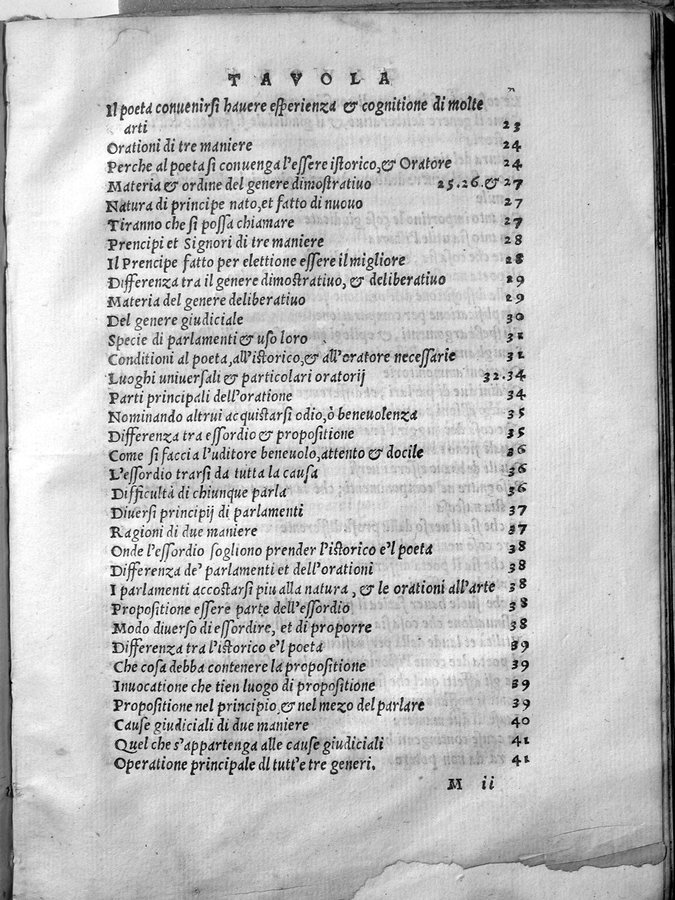 TAVOLA
Il poeta conuenirsi hauere esperienza & cognitione di molte
arti 23
Orationi di tre maniere 24
Perche al poeta si conuenga l'essere istorico, & Oratore 24
Materia & ordine del genere dimostratiuo 25.26.& 27
Natura di principe nato, et fatto di nuouo 27
Tiranno che si possa chiamare 27
Prencipi et Signori di tre maniere 28
Il Prencipe fatto per elettione essere il migliore 28
Differenza tra il genere dimostratiuo, & deliberatiuo 29
Materia del genere deliberatiuo 29
Del genere giudiciale 30
Specie di parlamenti & uso loro 31
Conditioni al poeta, all'istorico, & all'oratore necessarie 31
Luoghi uniuersali & particolari oratorij 32.34
Parti principali dell'oratione 34
Nominando altrui acquistarsi odio, ò beneuolenza 35
Differenza tra essordio & propositione 35
Come si faccia l'uditore beneuolo, attento & docile 36
L'essordio trarsi da tutta la causa 36
Difficultà di chiunque parla 36
Diuersi principij di parlamenti 37
Ragioni di due maniere 37
Onde l'essordio sogliono prender l'istorico e'l poeta 38
Differenza de' parlamenti et dell'orationi 38
I parlamenti accostarsi piu alla natura, & le orationi all'arte 38
Propositione essere parte dell'essordio 38
Modo diuerso di essordire, et di proporre 38
Differenza tra l'istorico e'l poeta 39
Che cosa debba contenere la propositione 39
Inuocatione che tien luogo di propositione 39
Propositione nel principio, & nel mezo del parlare 39
Cause giudiciali di due maniere 40
Quel che s'appartenga alle cause giudiciali 41
Operatione principale dl tutt'e tre generi. 41
M ii